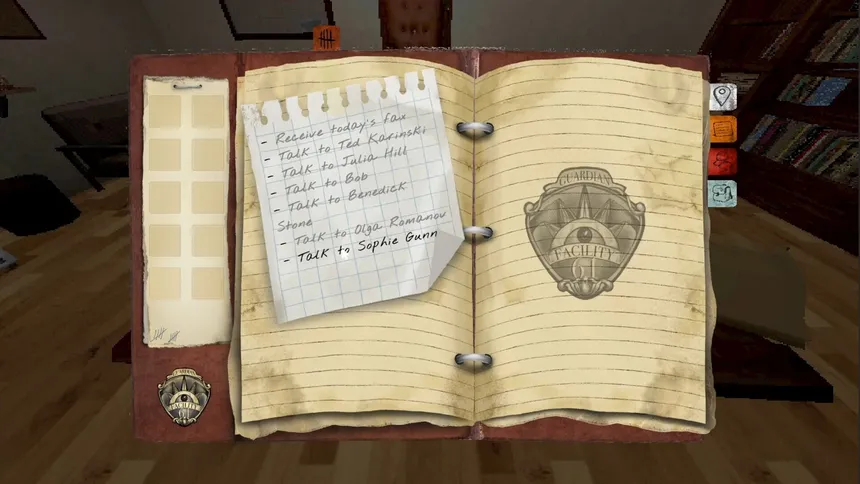 - Receive today's fax
- Talk to Ted Karinski
- Talk to Julia Hill
- Talk to Bob
- Talk to Benedick
Stone
- Talk to Olga Romanov
- Talk to Sophie Gunn
GUARDIAN
FACILITY
61
GUARDIAN
FACILITY
61